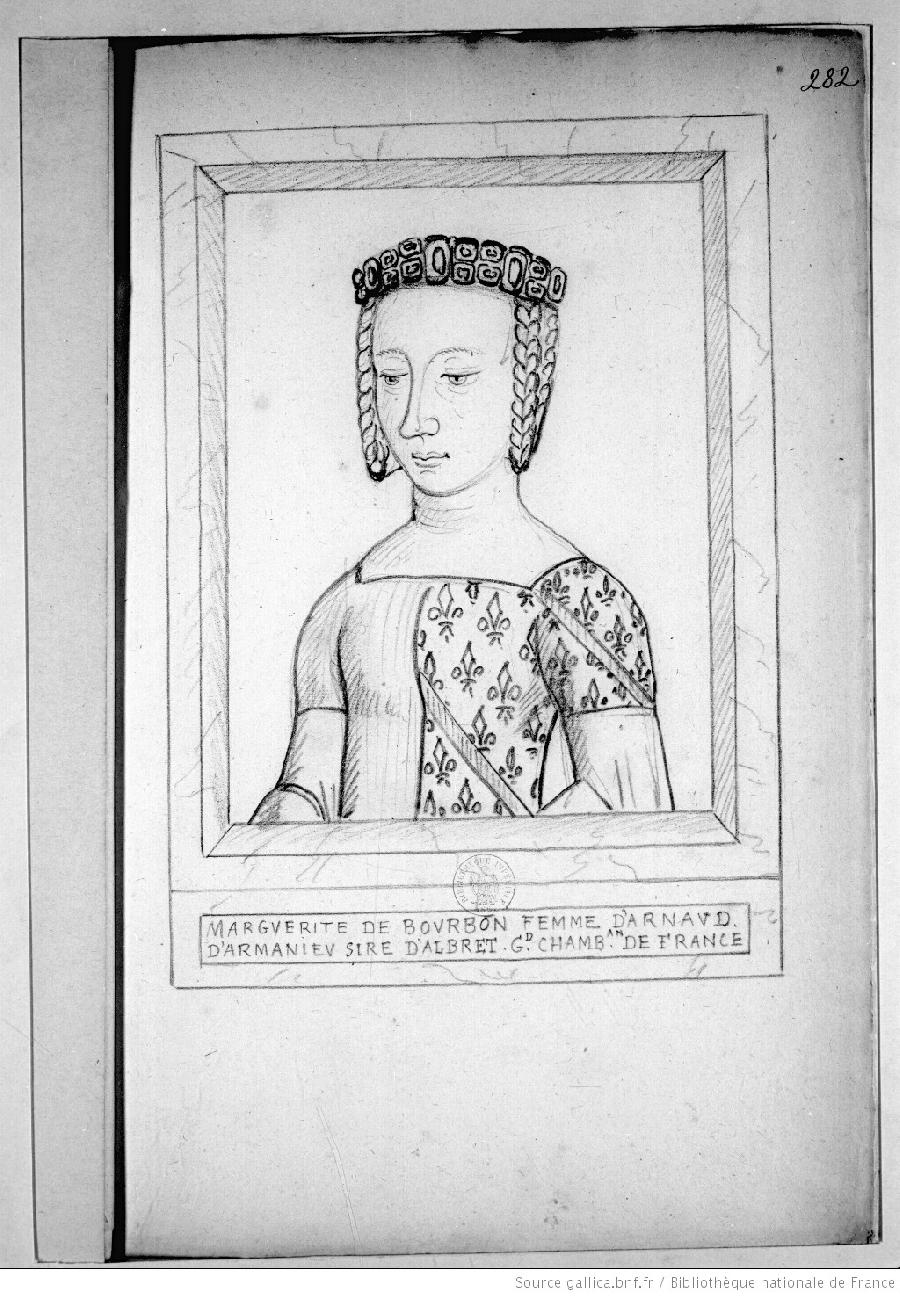 282
MARGVERITE DE BOVRBON FEMME D'ARNAVD.
D'ARMANIEV SIRE D'ALBRET. G.D CHAMB.AN DE FRANCE
Source gallica.bnf.fr / Bibliothèque nationale de France